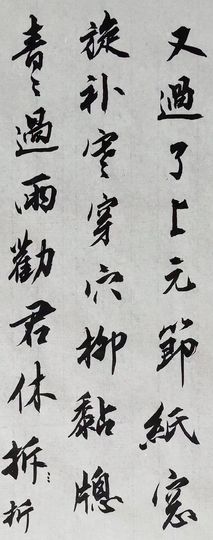 又過了上元節紙窓
旋补寒穿穴柳黏牎
青〻過雨勸君休拆〻折